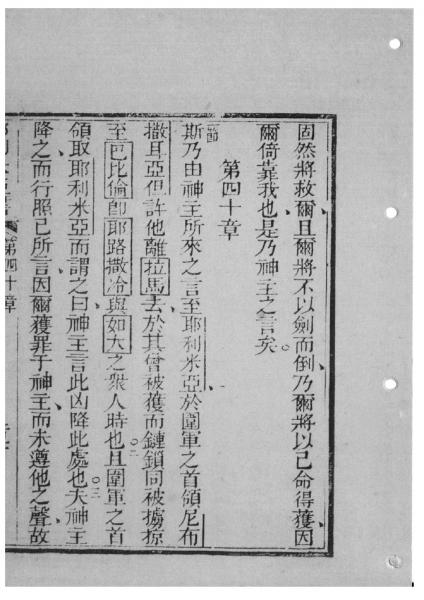 固然將救爾且爾將不以劍而倒乃爾將以己命得獲因
爾倚靠我也是乃神主之言矣○
第四十章
一節
斯乃由神主所來之言至耶利米亞於圍軍之首領尼布
撒耳亞但許他離拉馬去於其曾被獲而鏈鎖同被擄掠
至巴比倫即耶路撒冷與如大之衆人時也○二且圍軍之首
領取耶利米亞而謂之曰神主言此凶降此處也○三夫神主
降之而行照己所言因爾獲罪于神主而未遵他之聲故
第四十章